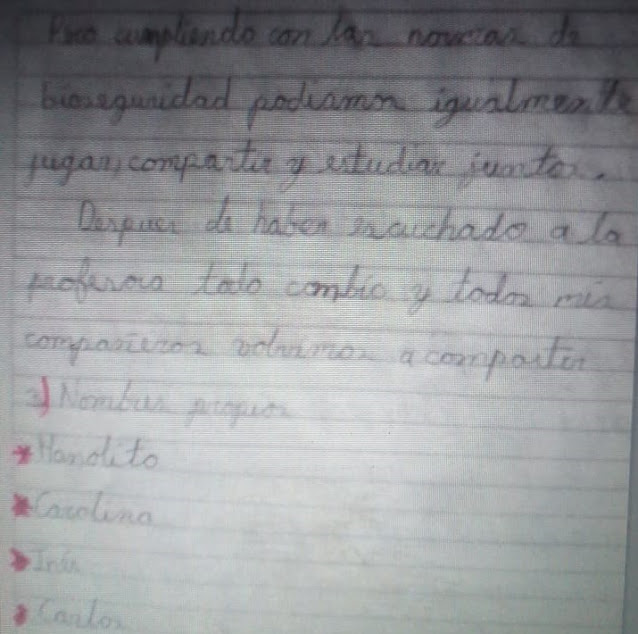 Pero cumpliendo con las normas de
bioseguridad podiamos igualmente
jugar, compartir y estudiar juntos.
Despues de haber escuchado a la
profesora todo cambio y todos mis
compañeros volvimos a compartir
2) Nombres propios
* Manolito
* Carolina
* Inés
* Carlos